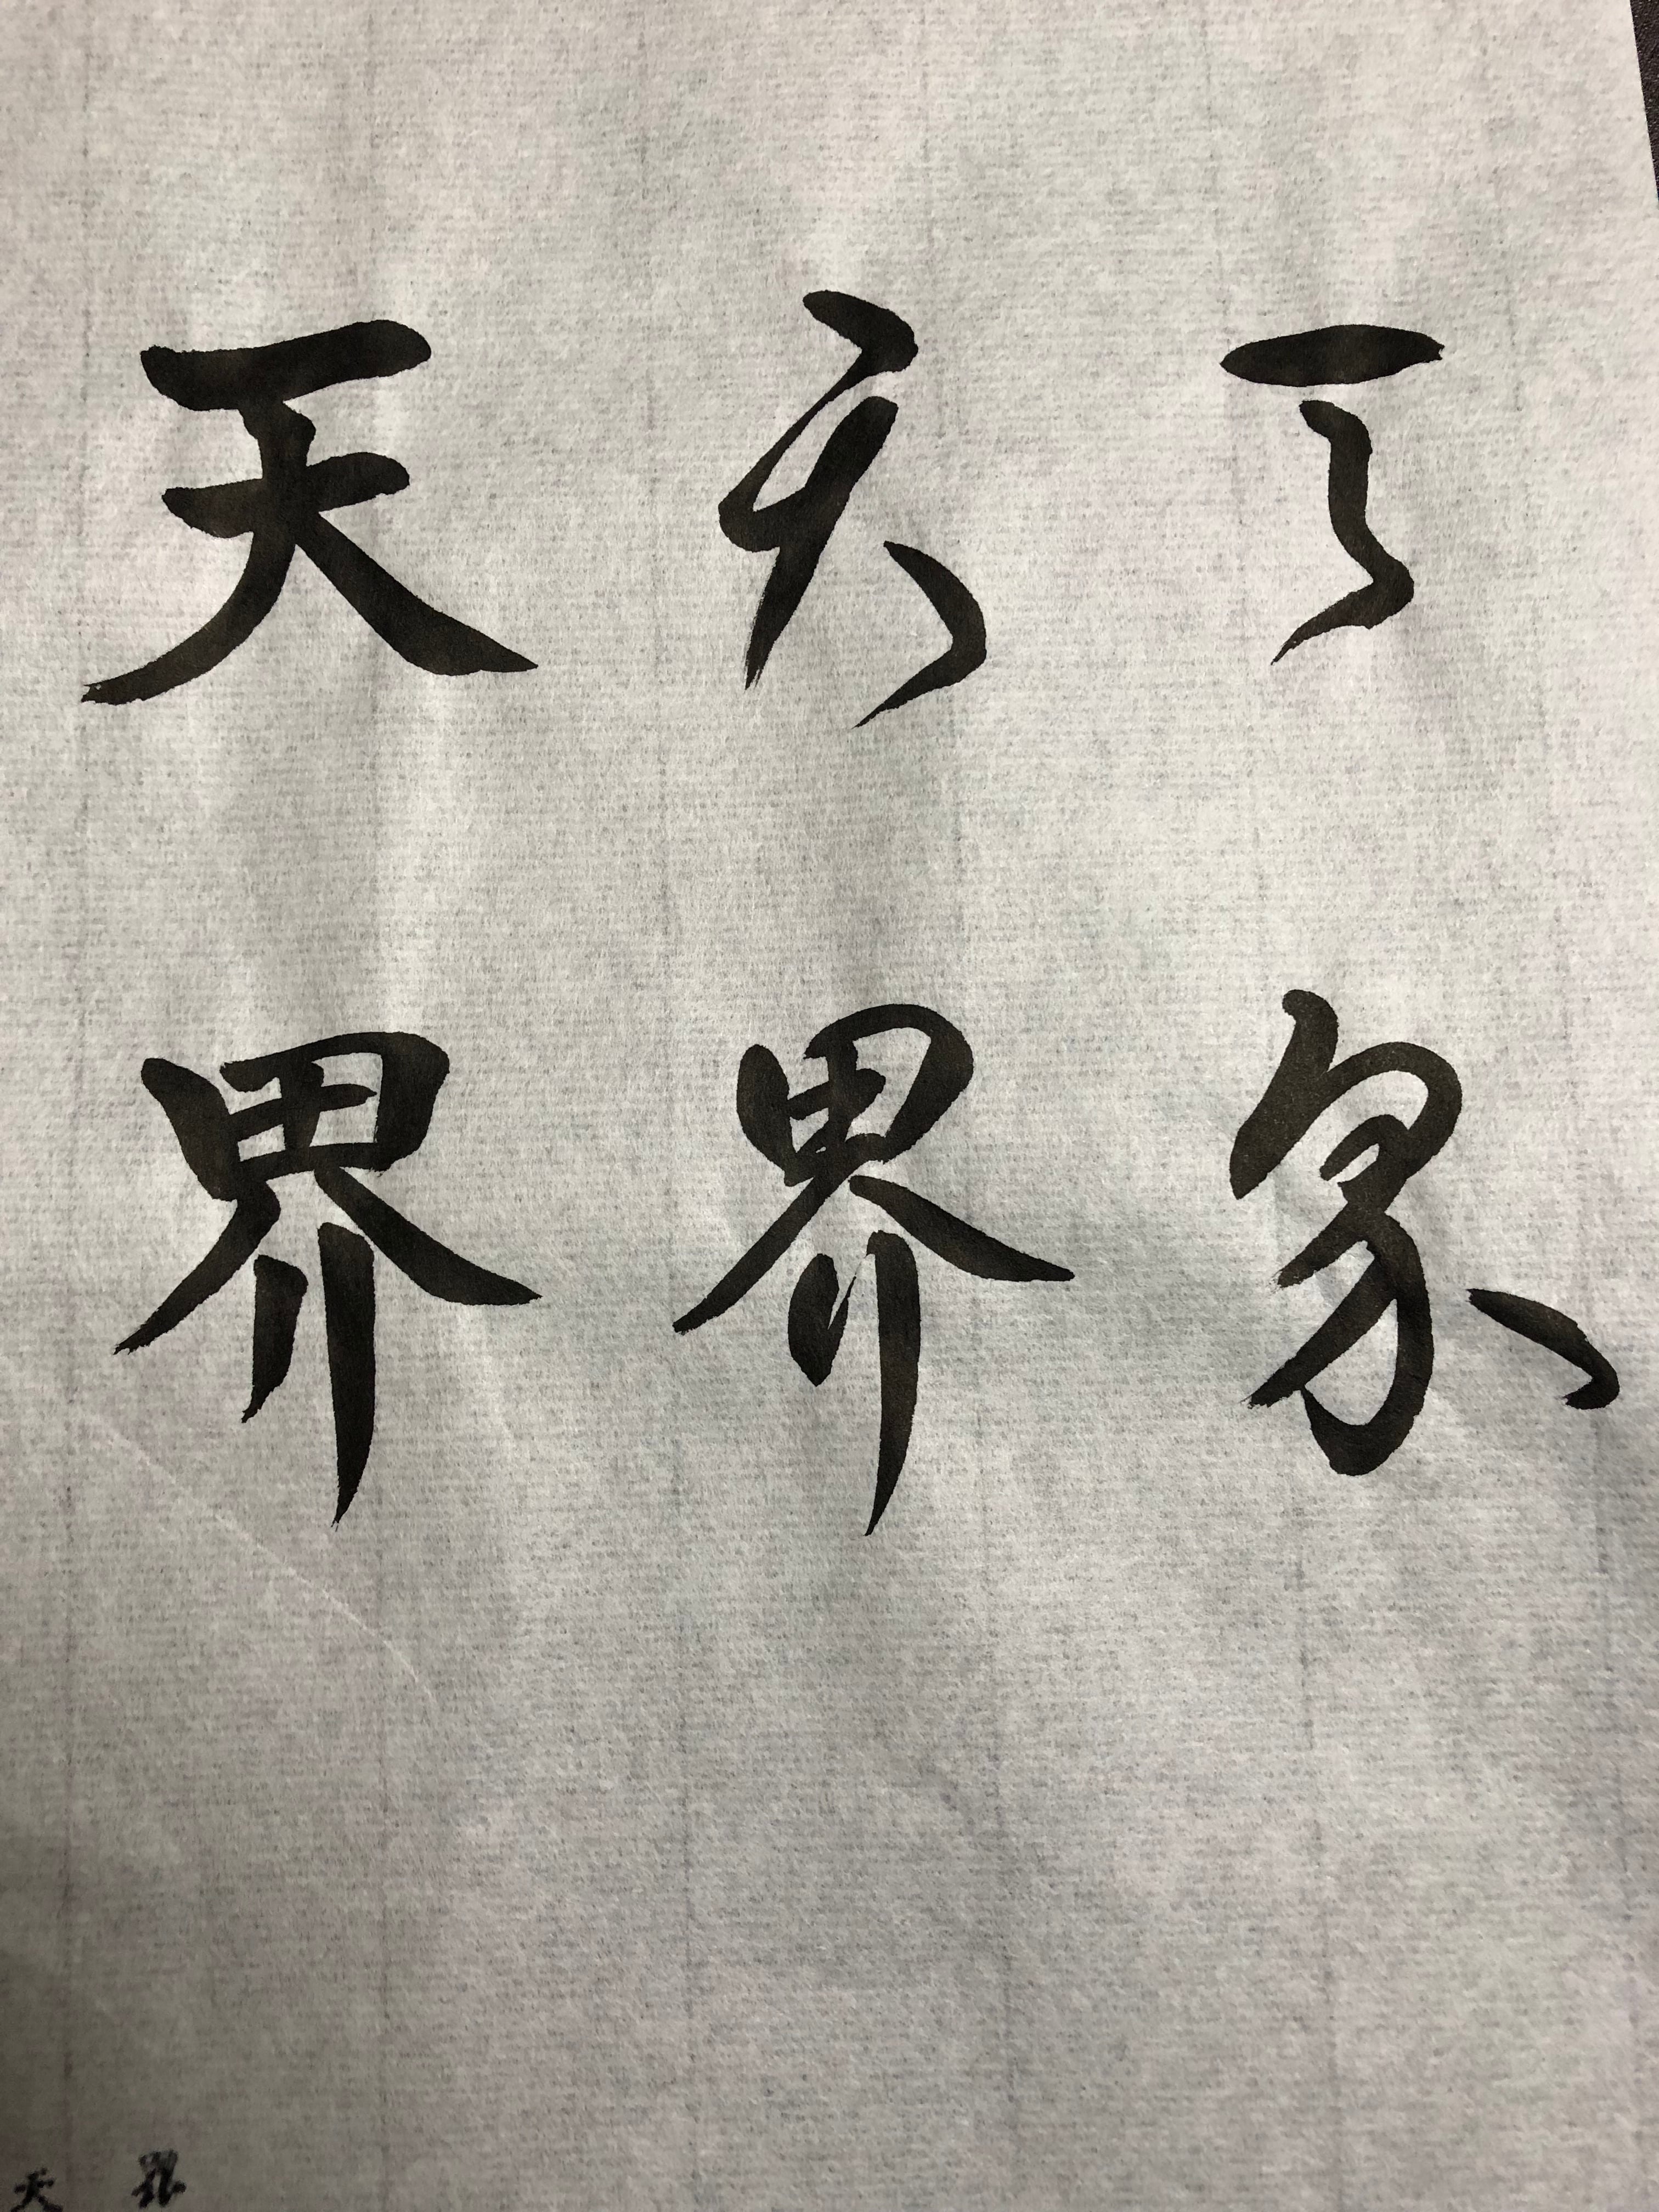 天天天
界界界
天